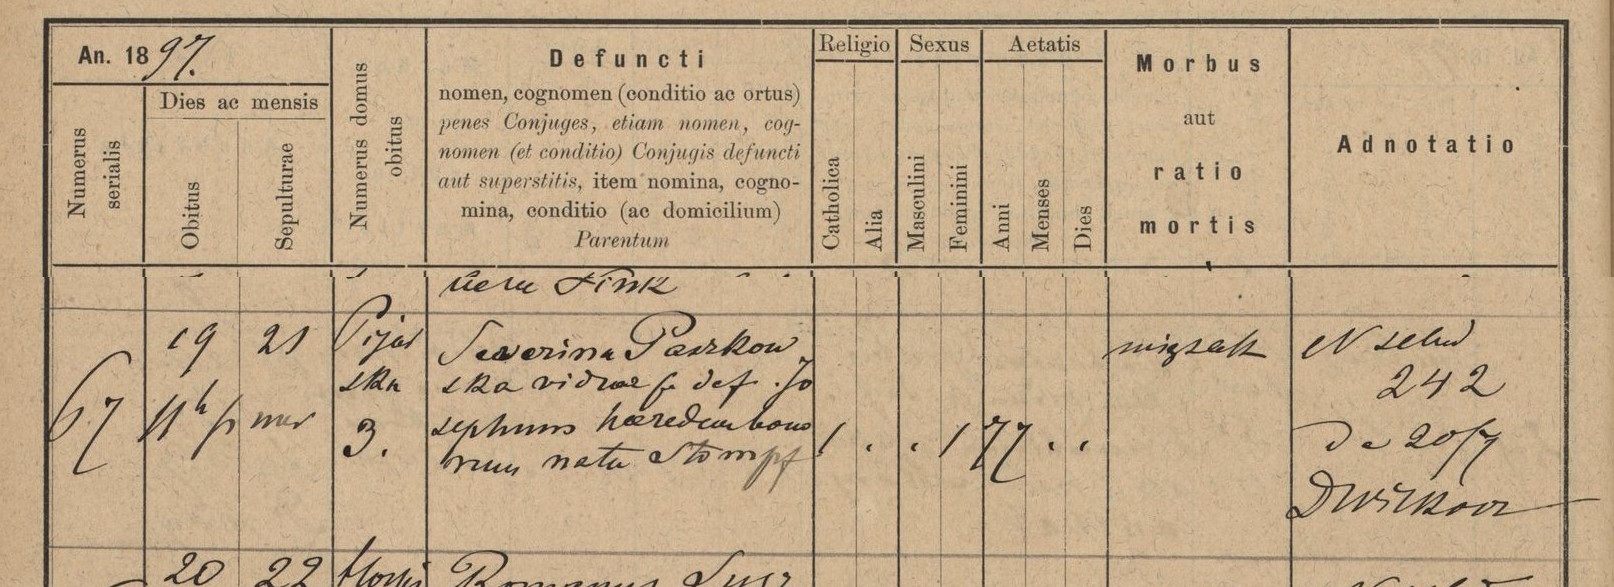 An. 1897.
Dies ac mensis
Numerus serialis
Obitus
Sepulturae
Numerus domus obitus
Defuncti
nomen, cognomen (conditio ac ortus)
penes Conjuges, etiam nomen, cog-
nomen (et conditio) Conjugis defuncti
aut superstitis, item nomina, cogno-
mina, conditio (ac domicilium)
Parentum
Religio
Catholica
Alia
Sexus
Masculini
Feminini
Aetatis
Anni
Menses
Dies
Morbus
aut
ratio
mortis
Adnotatio
Fink
67
19
11 h p
21
mer
Pijar
ska
3.
Severina Paszkow
ska vidua p def. Jo
sephum haeredum bono
rum nata Stompf
1 . . 1 77 . .
N
242
de 20/7
20 22
Romanus